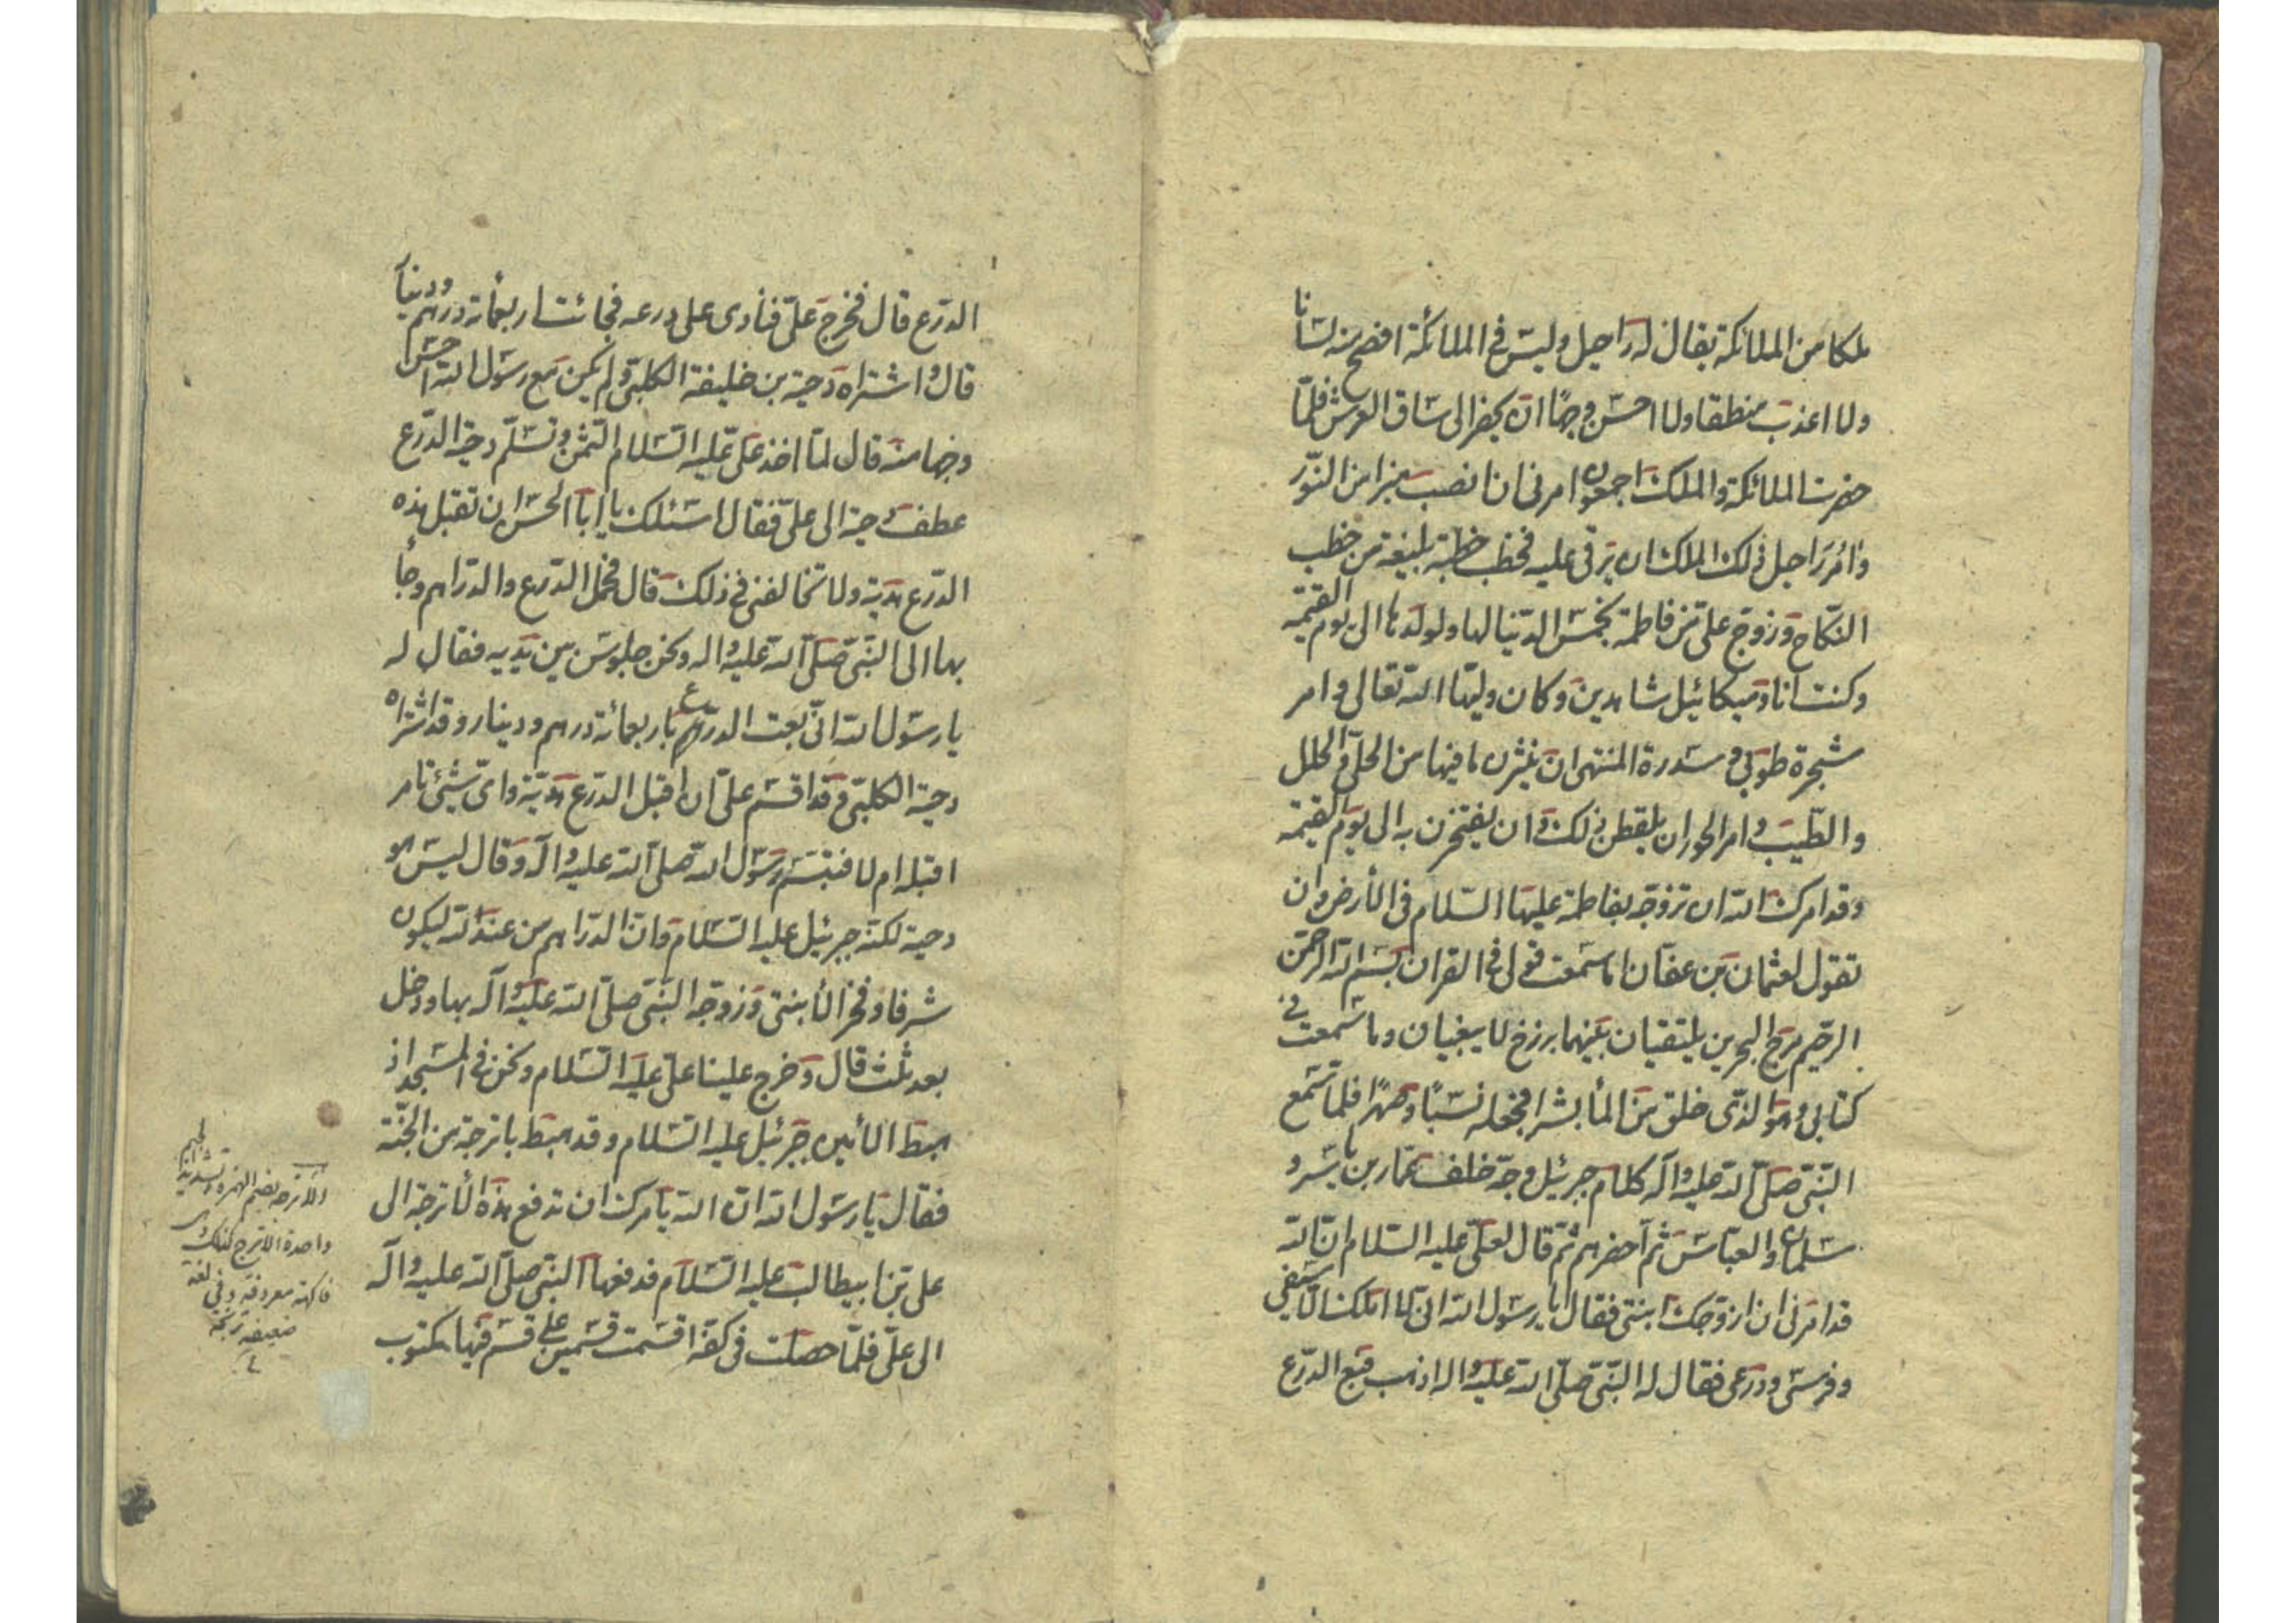 ملكا من الملائكة يقال له راحيل وليس في الملائكة افصح منه لسانا
ولا اعذب منطقا ولا احسن وجها ان يحضر الى ساق العرش فلما
حضرت الملائكة والملك اجمعون امرنى ان انصب منبرا من النور
وامر راحيل ذلك الملك ان يرقى عليه فخطب خطبة بليغة من خطب
النكاح وزوج على من فاطمة بخمس الدنيا لها ولولدها الى يوم القيمة
وكنت انا وميكائيل شاهدين وكان وليها الله تعالى وامر
شجرة طوبى و سدرة المنتهى ان ينثرن ما فيها من الحلى والحلل
والطيب وامر الحور ان يلقطن ذلك وان يفتخرن به الى يوم القيمة
وقد امرك الله ان تزوجه بفاطمة عليها السلام فى الأرض وان
تقول لعثمان بن عفان اما سمعت قولى فى القران بسم الله الرحمن
الرحيم مرج البحرين يلتقيان بينهما برزخ لا يبغيان وما سمعت فى
كتابى وهو الذى خلق من المأ بشرا فجعله نسبا وصهرا فلما سمع
النبى صلى الله عليه وآله كلام جبرئيل وجه خلف عمار بن ياسر و
سلمان والعباس ثم احضرهم ثم قال لعلى عليه السلام ان الله
قد امرنى ان ازوجك ابنتى فقال يا رسول الله انى لا املك الا سيفى
وفرسى ودرعى فقال له النبى صلى الله عليه واله اذهب فبع الدرع
الدرع قال فخرج على فنادى على درعه فجائت اربعمأة درهم ودينار
قال واشتراه دحية بن خليفة الكلبى ولم يكن مع رسول الله احسن
وجها منه قال لما اخذ على عليه السلام الثمن وتسلم دحية الدرع
عطف دحية الى على فقال اسئلك يا ابا الحسن ان تقبل هذه
الدرع هدية ولا تخالفنى فى ذلك قال فحمل الدرع والدراهم وجأ
بها الى النبى صلى الله عليه واله ونحن جلوس بين يديه فقال له
يا رسول الله انى بعت الدرع باربعمائة درهم ودينار وقد اشتراه
دحية الكلبى وقد اقسم على ان اقبل الدرع هدية واى شيئ تامر
اقبله ام لا فتبسم رسول الله صلى الله عليه وآله وقال ليس هو
دحية لكنه جبرئيل عليه السلام وان الدراهم من عند الله ليكون
شرفا وفخرا لأبنتى وزوجه النبى صلى الله عليه وآله بها ودخل
بعد ثلث قال وخرج علينا على عليه السلام ونحن فى المسجد اذ
هبط الأمين جبرئيل عليه السلام وقد هبط باترجة من الجنة
فقال يا رسول الله ان الله يامرك ان تدفع هذه الأترجة الى
على بن ابيطالب عليه السلام فدفعها النبى صلى الله عليه وآله
الى على فلما حصلت فى كفه اقسمت قسمين على قسم منها مكتوب
الأترجة بضم الهمزة وتشديد الجيم
واحدة الأترج كذلك
فاكهة معروفة وفى لغة
ضعيفة ترنجة